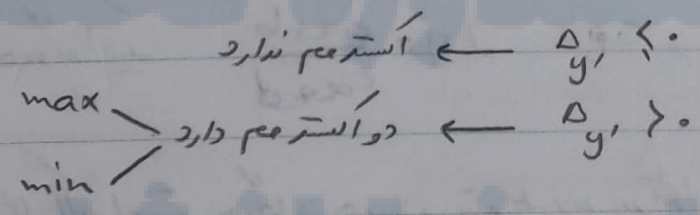 Δy' ≤ ۰ ⟵ اکسترمم ندارد
Δy' > ۰ ⟵ دو اکسترمم دارد
max
min